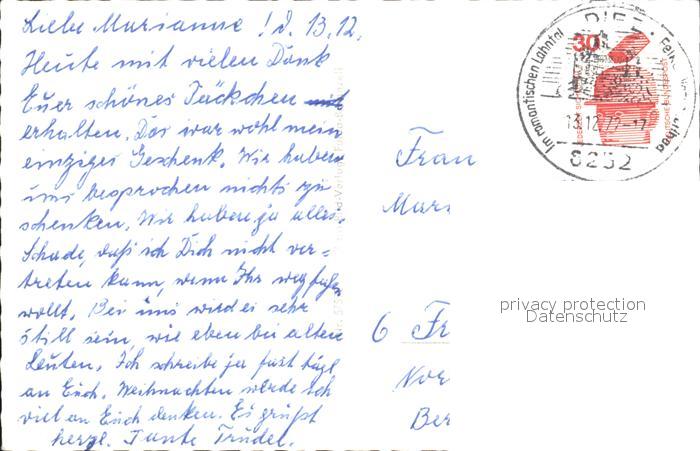 Liebe Marianne! d. 13.12.
Heute mit vielen Dank
Euer schönes Päckchen
erhalten. Das war wohl mein
einziges Geschenk. Wir haben
uns besprochen nichts zu
schenken. Wir haben ja alles.
Schade, daß ich Dich nicht ver=
treten kann, wenn Ihr wegfahren
wollt. Bei uns wird es sehr
still sein, wie eben bei alten
Leuten. Ich schreibe ja fast tägl.
an Euch. Weihnachten werde ich
viel an Euch denken. Es grüßt
herzl. Tante Trudel.
Frau
Mar
6 Fr
Nor
Ber
30
DIEZ
Im romantischen Lahntal
13.12.72-17
6252
privacy protection
Datenschutz